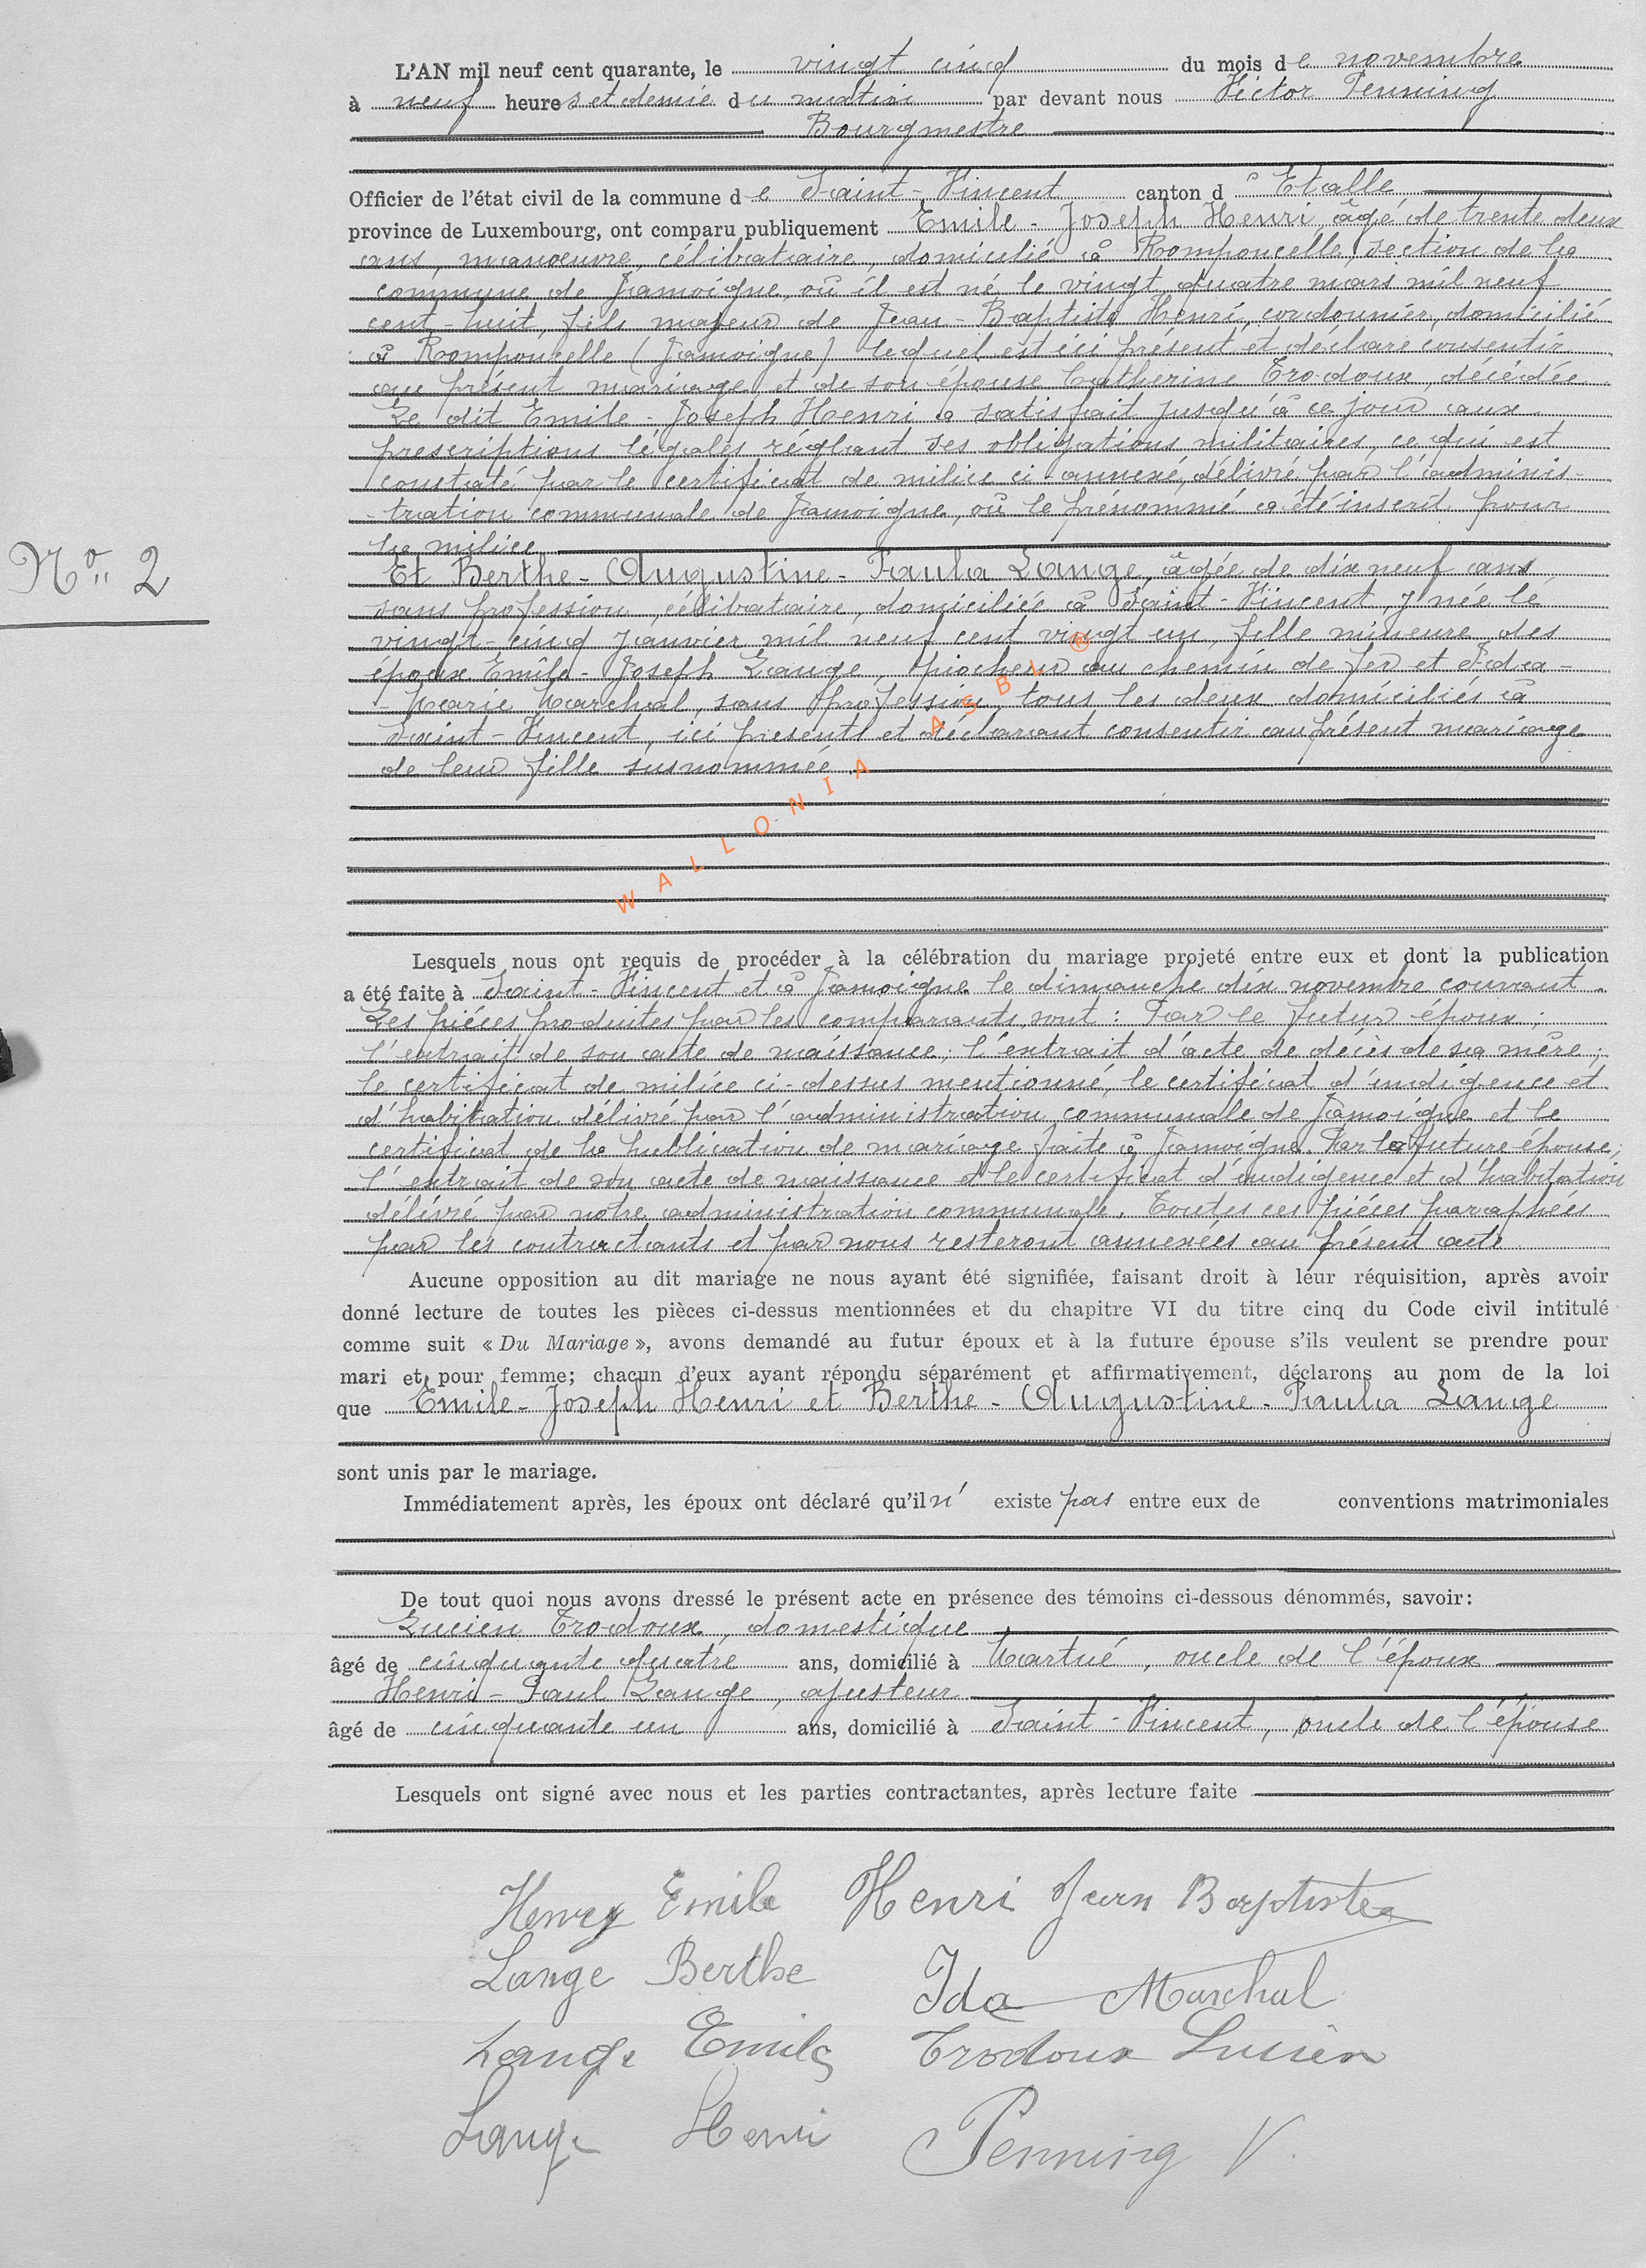 L'AN mil neuf cent quarante, le vingt cinq du mois de novembre
à neuf heures et demie du matin par devant nous Victor Penning
Bourgmestre
Officier de l'état civil de la commune de Saint-Vincent canton d'Etalle
province de Luxembourg, ont comparu publiquement Emile-Joseph Henri, âgé de trente deux
ans, manoeuvre, célibataire, domicilié à Romponcelle, section de la
commune de Jamoigne, où il est né le vingt quatre mars mil neuf
cent-huit, fils majeur de Jean-Baptiste Henri, cordonnier, domicilié
à Romponcelle (Jamoigne) lequel est ici présent et déclare consentir
au présent mariage et de son épouse Catherine Trodoux, décédée.
Le dit Emile-Joseph Henri a satisfait jusqu'à ce jour aux
prescriptions légales réglant ses obligations militaires, ce qui est
constaté par le certificat de milice ci-annexé, délivré par l'adminis-
-tration communale de Jamoigne, où le prénommé a été inscrit pour
la milice
N° 2
Et Berthe-Augustine-Paula Lange, âgée de dix neuf ans
sans profession, célibataire, domiciliée à Saint-Vincent, y née le
vingt-cinq janvier mil neuf cent vingt un, fille mineure des
époux Emile-Joseph Lange, piocheur au chemin de fer et Ida-
-Marie Marchal, sans profession, tous les deux domiciliés à
Saint-Vincent, ici présents et déclarant consentir au présent mariage
de leur fille susnommée.
WALLONIA ASBL ®
Lesquels nous ont requis de procéder à la célébration du mariage projeté entre eux et dont la publication
a été faite à Saint-Vincent et à Jamoigne le dimanche dix novembre courant.
Les pièces produites par les comparants, sont: Par le futur époux;
l'extrait de son acte de naissance; l'extrait d'acte de décès de sa mère;
le certificat de milice ci-dessus mentionné, le certificat d'indigence et
d'habitation délivré par l'administration communale de Jamoigne et le
certificat de la publication de mariage faite à Jamoigne. Par la future épouse;
l'extrait de son acte de naissance et le certificat d'indigence et d'habitation
délivré par notre administration communale. Toutes ces pièces paraphées
par les contractants et par nous resteront annexées au présent acte
Aucune opposition au dit mariage ne nous ayant été signifiée, faisant droit à leur réquisition, après avoir
donné lecture de toutes les pièces ci-dessus mentionnées et du chapitre VI du titre cinq du Code civil intitulé
comme suit « Du Mariage », avons demandé au futur époux et à la future épouse s'ils veulent se prendre pour
mari et pour femme; chacun d'eux ayant répondu séparément et affirmativement, déclarons au nom de la loi
que Emile-Joseph Henri et Berthe-Augustine-Paula Lange
sont unis par le mariage.
Immédiatement après, les époux ont déclaré qu'il n'existe pas entre eux de conventions matrimoniales
De tout quoi nous avons dressé le présent acte en présence des témoins ci-dessous dénommés, savoir:
Lucien Trodoux, domestique
âgé de cinquante quatre ans, domicilié à Martué, oncle de l'époux
Henri-Paul Lange, ajusteur
âgé de cinquante un ans, domicilié à Saint-Vincent, oncle de l'épouse
Lesquels ont signé avec nous et les parties contractantes, après lecture faite
Henry Emile Henri Jean Baptiste
Lange Berthe Ida Marchal
Lange Emile Trodoux Lucien
Lange Henri Penning V.